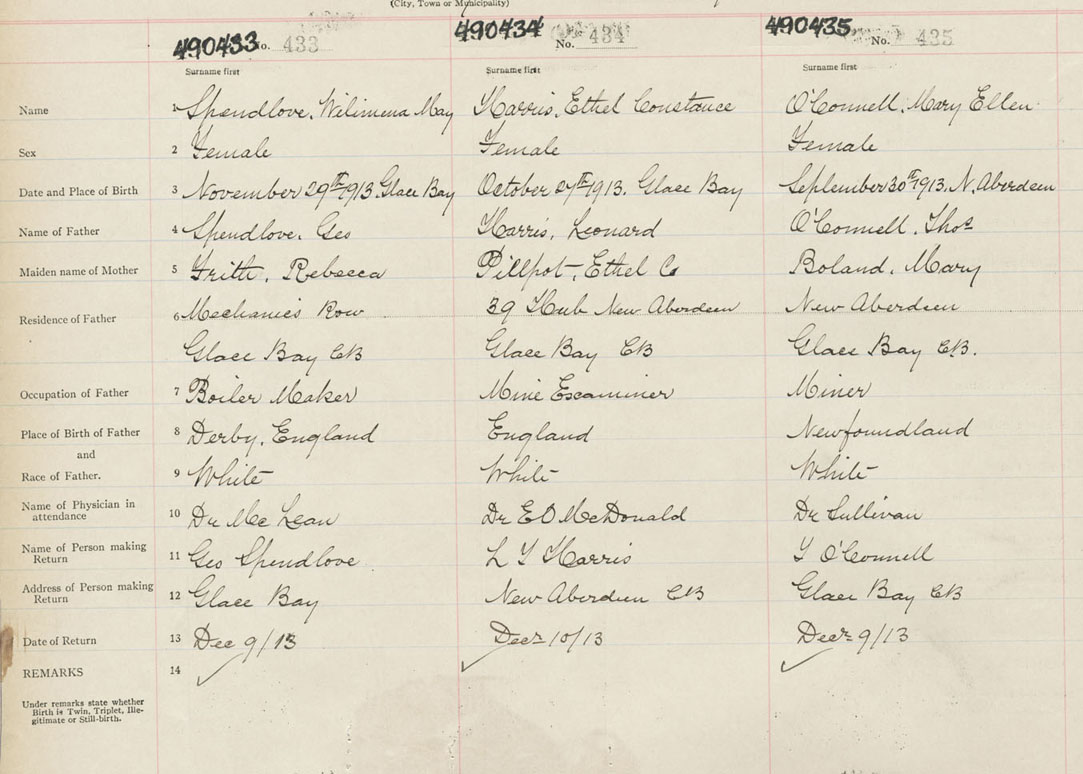 (City, Town or Municipality)
490433 No. 433 490434 No. 434 490435 No. 435
Surname first Surname first Surname first
Name 1 Spendlove, Wilimena May Harris, Ethel Constance O'Connell, Mary Ellen
Sex 2 Female Female Female
Date and Place of Birth 3 November 29th 1913. Glace Bay October 27th 1913. Glace Bay September 30th 1913. N. Aberdeen
Name of Father 4 Spendlove, Geo Harris, Leonard O'Connell, Thos
Maiden name of Mother 5 Frith, Rebecca Pillpot, Ethel C Boland, Mary
Residence of Father 6 Mechanics Row 39 Hub New Aberdeen New Aberdeen
Glace Bay CB Glace Bay CB Glace Bay CB.
Occupation of Father 7 Boiler Maker Mine Escaminer Miner
Place of Birth of Father 8 Derby, England England Newfoundland
and
Race of Father. 9 White White White
Name of Physician in attendance 10 Dr Mc Lean Dr E O McDonald Dr Sullivan
Name of Person making Return 11 Geo Spendlove L Y Harris Y O'Connell
Address of Person making Return 12 Glace Bay New Aberdeen CB Glace Bay CB
Date of Return 13 Dec 9/13 Decr 10/13 Decr 9/13
REMARKS 14
Under remarks state whether
Birth is Twin, Triplet, Ille-
gitimate or Still-birth.